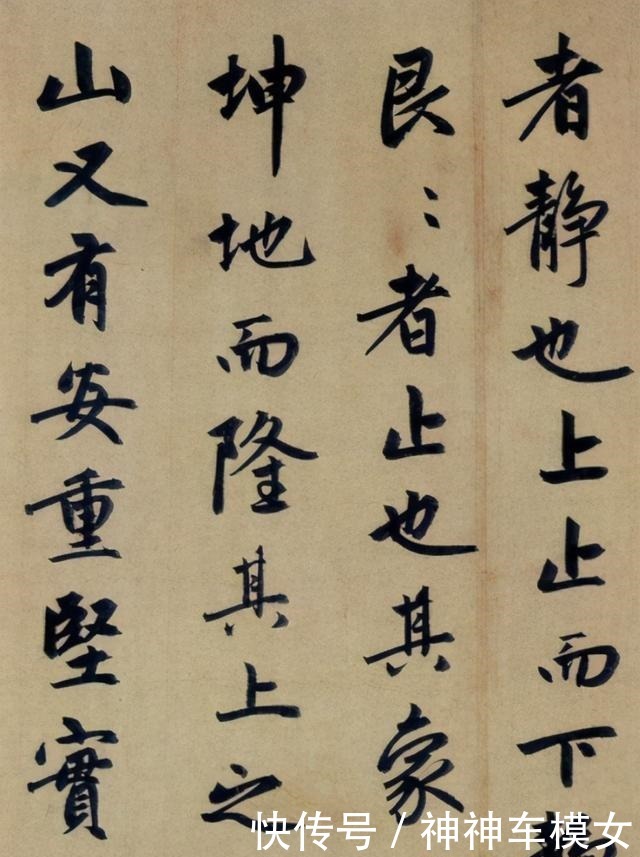 者静也上止而下
艮〻者止也其象
坤地而隆其上之
山又有安重堅實
快传号/神神车模女